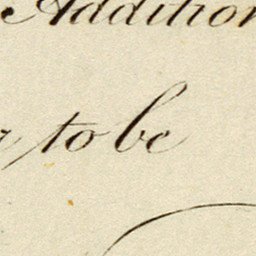 Addition
to be